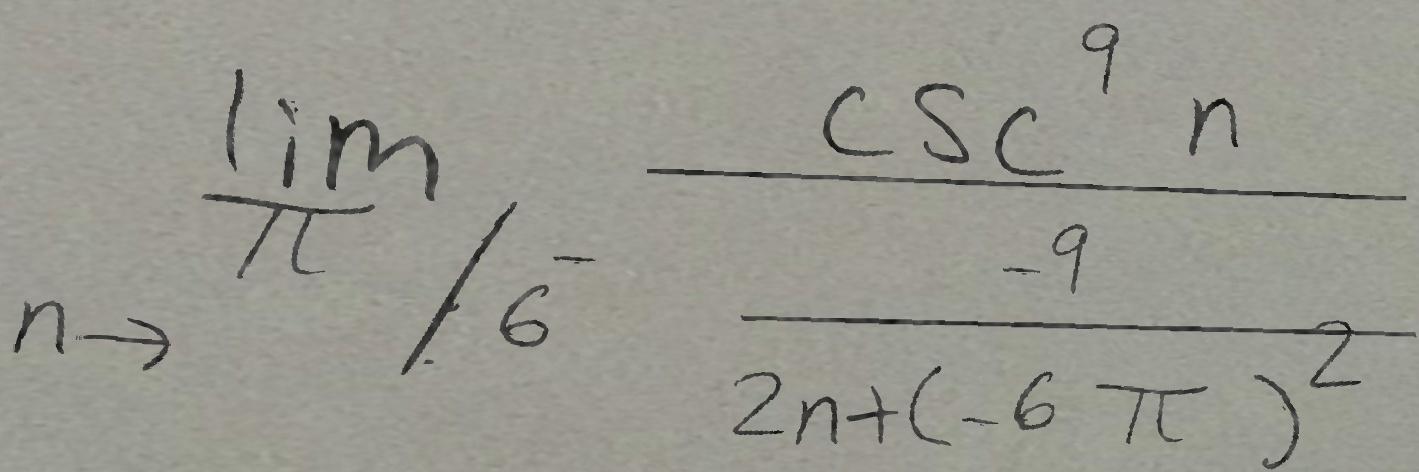 lim n→π/6⁻ csc⁹ n
-9
2n+(-6π)²